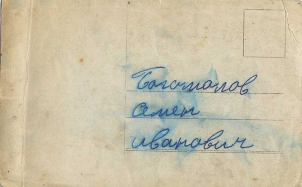 Богомолов
Семен
Иванович